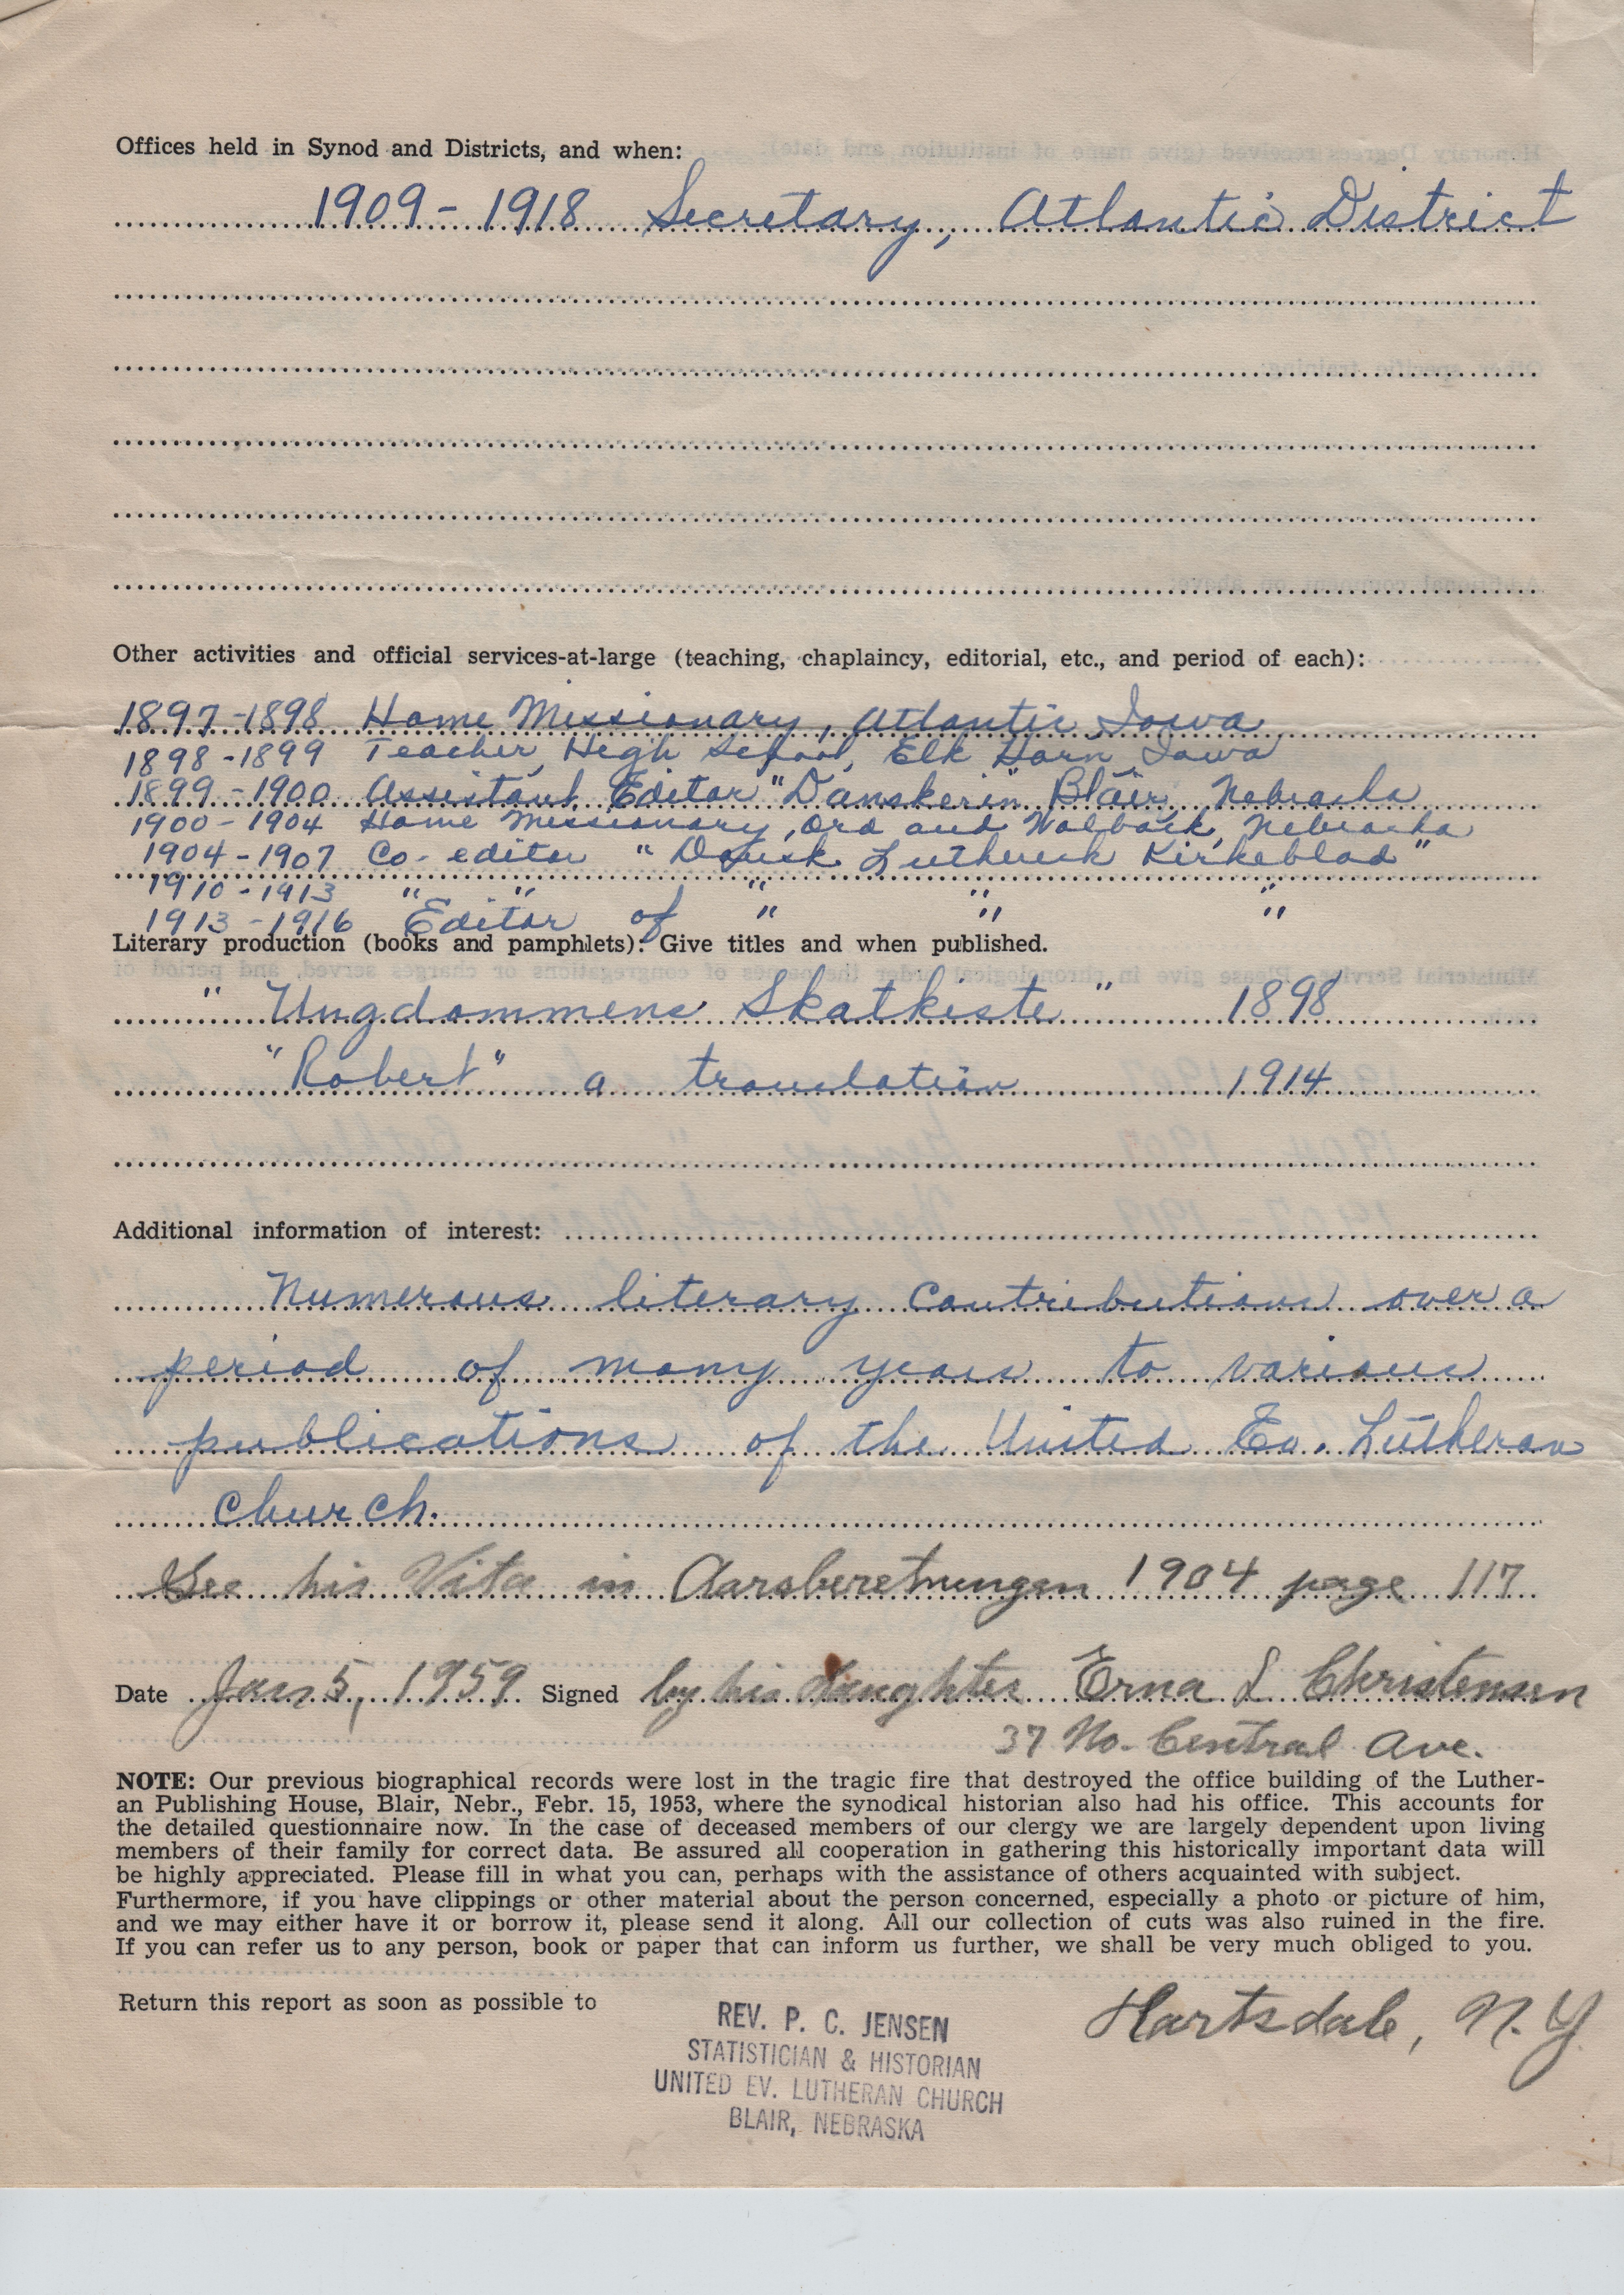 Offices held in Synod and Districts, and when:
1909 - 1918 Secretary, Atlantic District
Other activities and official services-at-large (teaching, chaplaincy, editorial, etc., and period of each):
1897-1898 Home Missionary, Atlantic, Iowa
1898-1899 Teacher, High School, Elk Horn, Iowa
1899-1900 Assistant Editor "Danskeren" Blair, Nebraska
1900-1904 Home Missionary, Ord and Nebraska
1904-1907 Co-editor "Dansk Luthersk Kirkeblad"
1910-1913 " " " " "
1913-1916 Editor of " " "
Literary production (books and pamphlets): Give titles and when published.
"Ungdommens Skatkiste" 1898
"Robert" a translation 1914
Additional information of interest:
Numerous literary contributions over a
period of many years to various
publications of the United Ev. Lutheran
Church.
See his Vita in Aarsberetningen 1904 page 117
Date Jan 5, 1959 Signed by his daughter Erna L Christensen
37 No. Central Ave.
NOTE: Our previous biographical records were lost in the tragic fire that destroyed the office building of the Luther-
an Publishing House, Blair, Nebr., Febr. 15, 1953, where the synodical historian also had his office. This accounts for
the detailed questionnaire now. In the case of deceased members of our clergy we are largely dependent upon living
members of their family for correct data. Be assured all cooperation in gathering this historically important data will
be highly appreciated. Please fill in what you can, perhaps with the assistance of others acquainted with subject.
Furthermore, if you have clippings or other material about the person concerned, especially a photo or picture of him,
and we may either have it or borrow it, please send it along. All our collection of cuts was also ruined in the fire.
If you can refer us to any person, book or paper that can inform us further, we shall be very much obliged to you.
Return this report as soon as possible to
Hartsdale, N.Y.
REV. P. C. JENSEN
STATISTICIAN & HISTORIAN
UNITED EV. LUTHERAN CHURCH
BLAIR, NEBRASKA